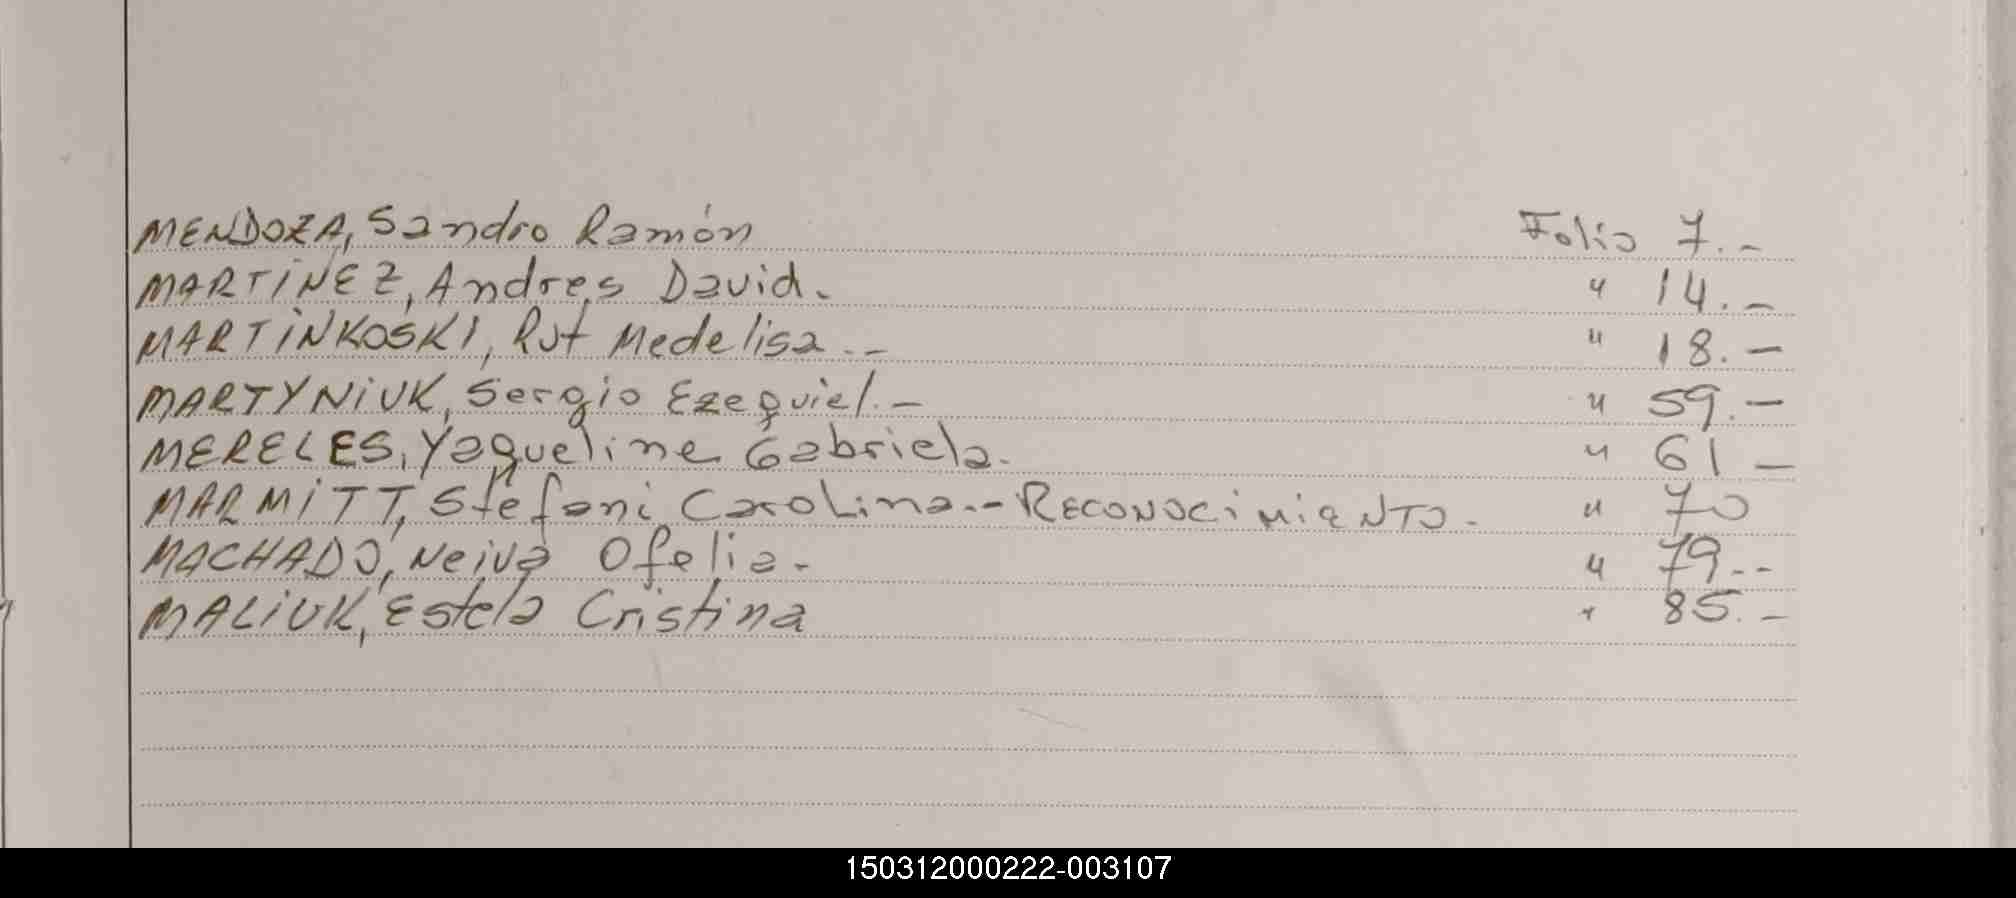 MENDOZA, Sandro Ramón Folio 7.-
MARTÍNEZ, Andres David. " 14.-
MARTINKOSKI, Rut Medelisa.- " 18.-
MARTYNIUK, Sergio Ezequiel.- " 59.-
MERELES, Yaqueline Gabriela. " 61-
MARMITT, Stefani Carolina.- RECONOCIMIENTO. " 70
MACHADO, Neiva Ofelia.- " 79.--
MALIUK, Estela Cristina " 85.-
150312000222-003107